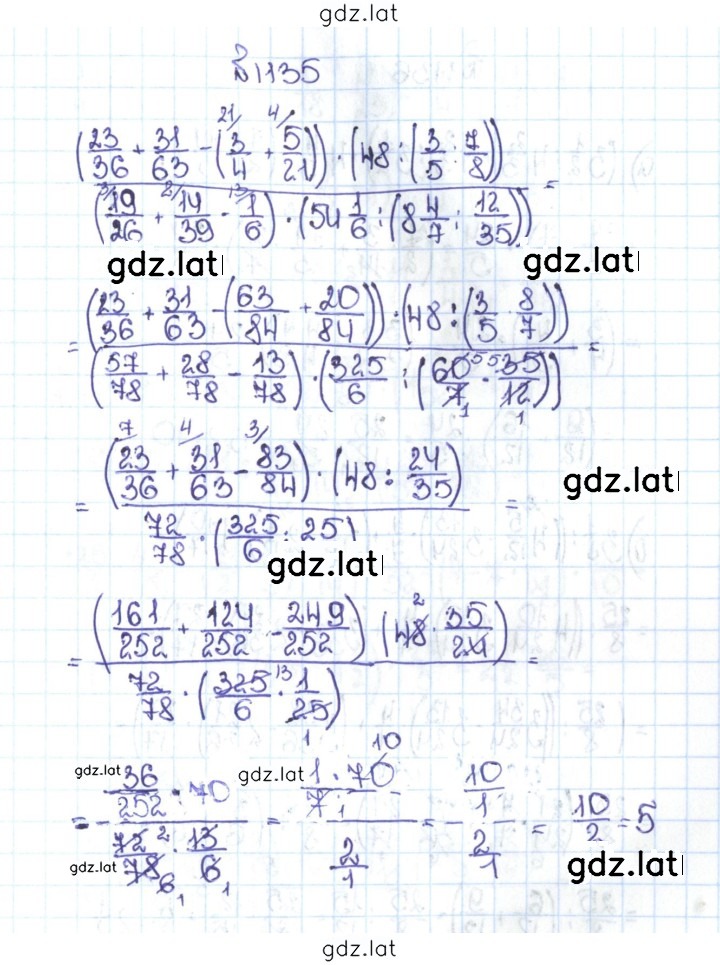 gdz.lat
№1135
(23/36 + 31/63 - (3/4 21/ + 5/21 4/)) · (48 : (3/5 : 7/8))
/ (19/26 3/ + 14/39 2/ - 1/6 13/) · (54 1/6 : (8 4/7 : 12/35)) =
gdz.lat gdz.lat
= (23/36 + 31/63 - (63/84 + 20/84)) · (48 : (3/5 · 8/7))
/ (57/78 + 28/78 - 13/78) · (325/6 : (60/7 5 1 · 35/12 5 1)) =
= (23/36 7/ + 31/63 4/ - 83/84 3/) · (48 : 24/35)
/ 72/78 · (325/6 : 25) =
gdz.lat
gdz.lat
= (161/252 + 124/252 - 249/252) (48 2 · 35/24)
/ 72/78 · (325/6 13 · 1/25 1) =
gdz.lat gdz.lat
= 36/252 · 70 / 72/78 2 6 1 · 13/6 1 = 1/7 1 · 70 10 / 2/1 = 10/1 / 2/1 = 10/2 = 5
gdz.lat gdz.lat
gdz.lat